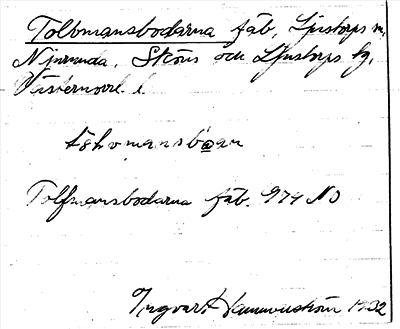 Tolvmansbodarna fäb, Ljustorps sn,
Njurunda, Sköns och Ljustorps hg,
Västernorrl l.
Tolfmansbodarna fäb. 974 NO
Ingvar Hammarström 1932